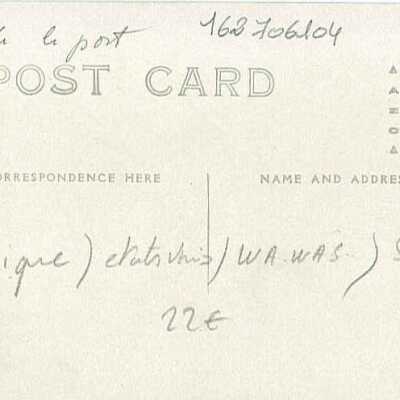 le post 163706104
POST CARD
ORRESPONDENCE HERE NAME AND ADDRE
ique) etats unis / WA. WAS. ) S
22€